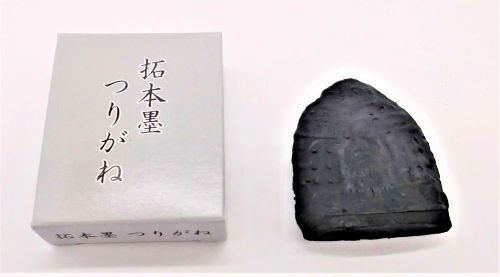 拓本墨
つりがね
拓本墨 つりがね